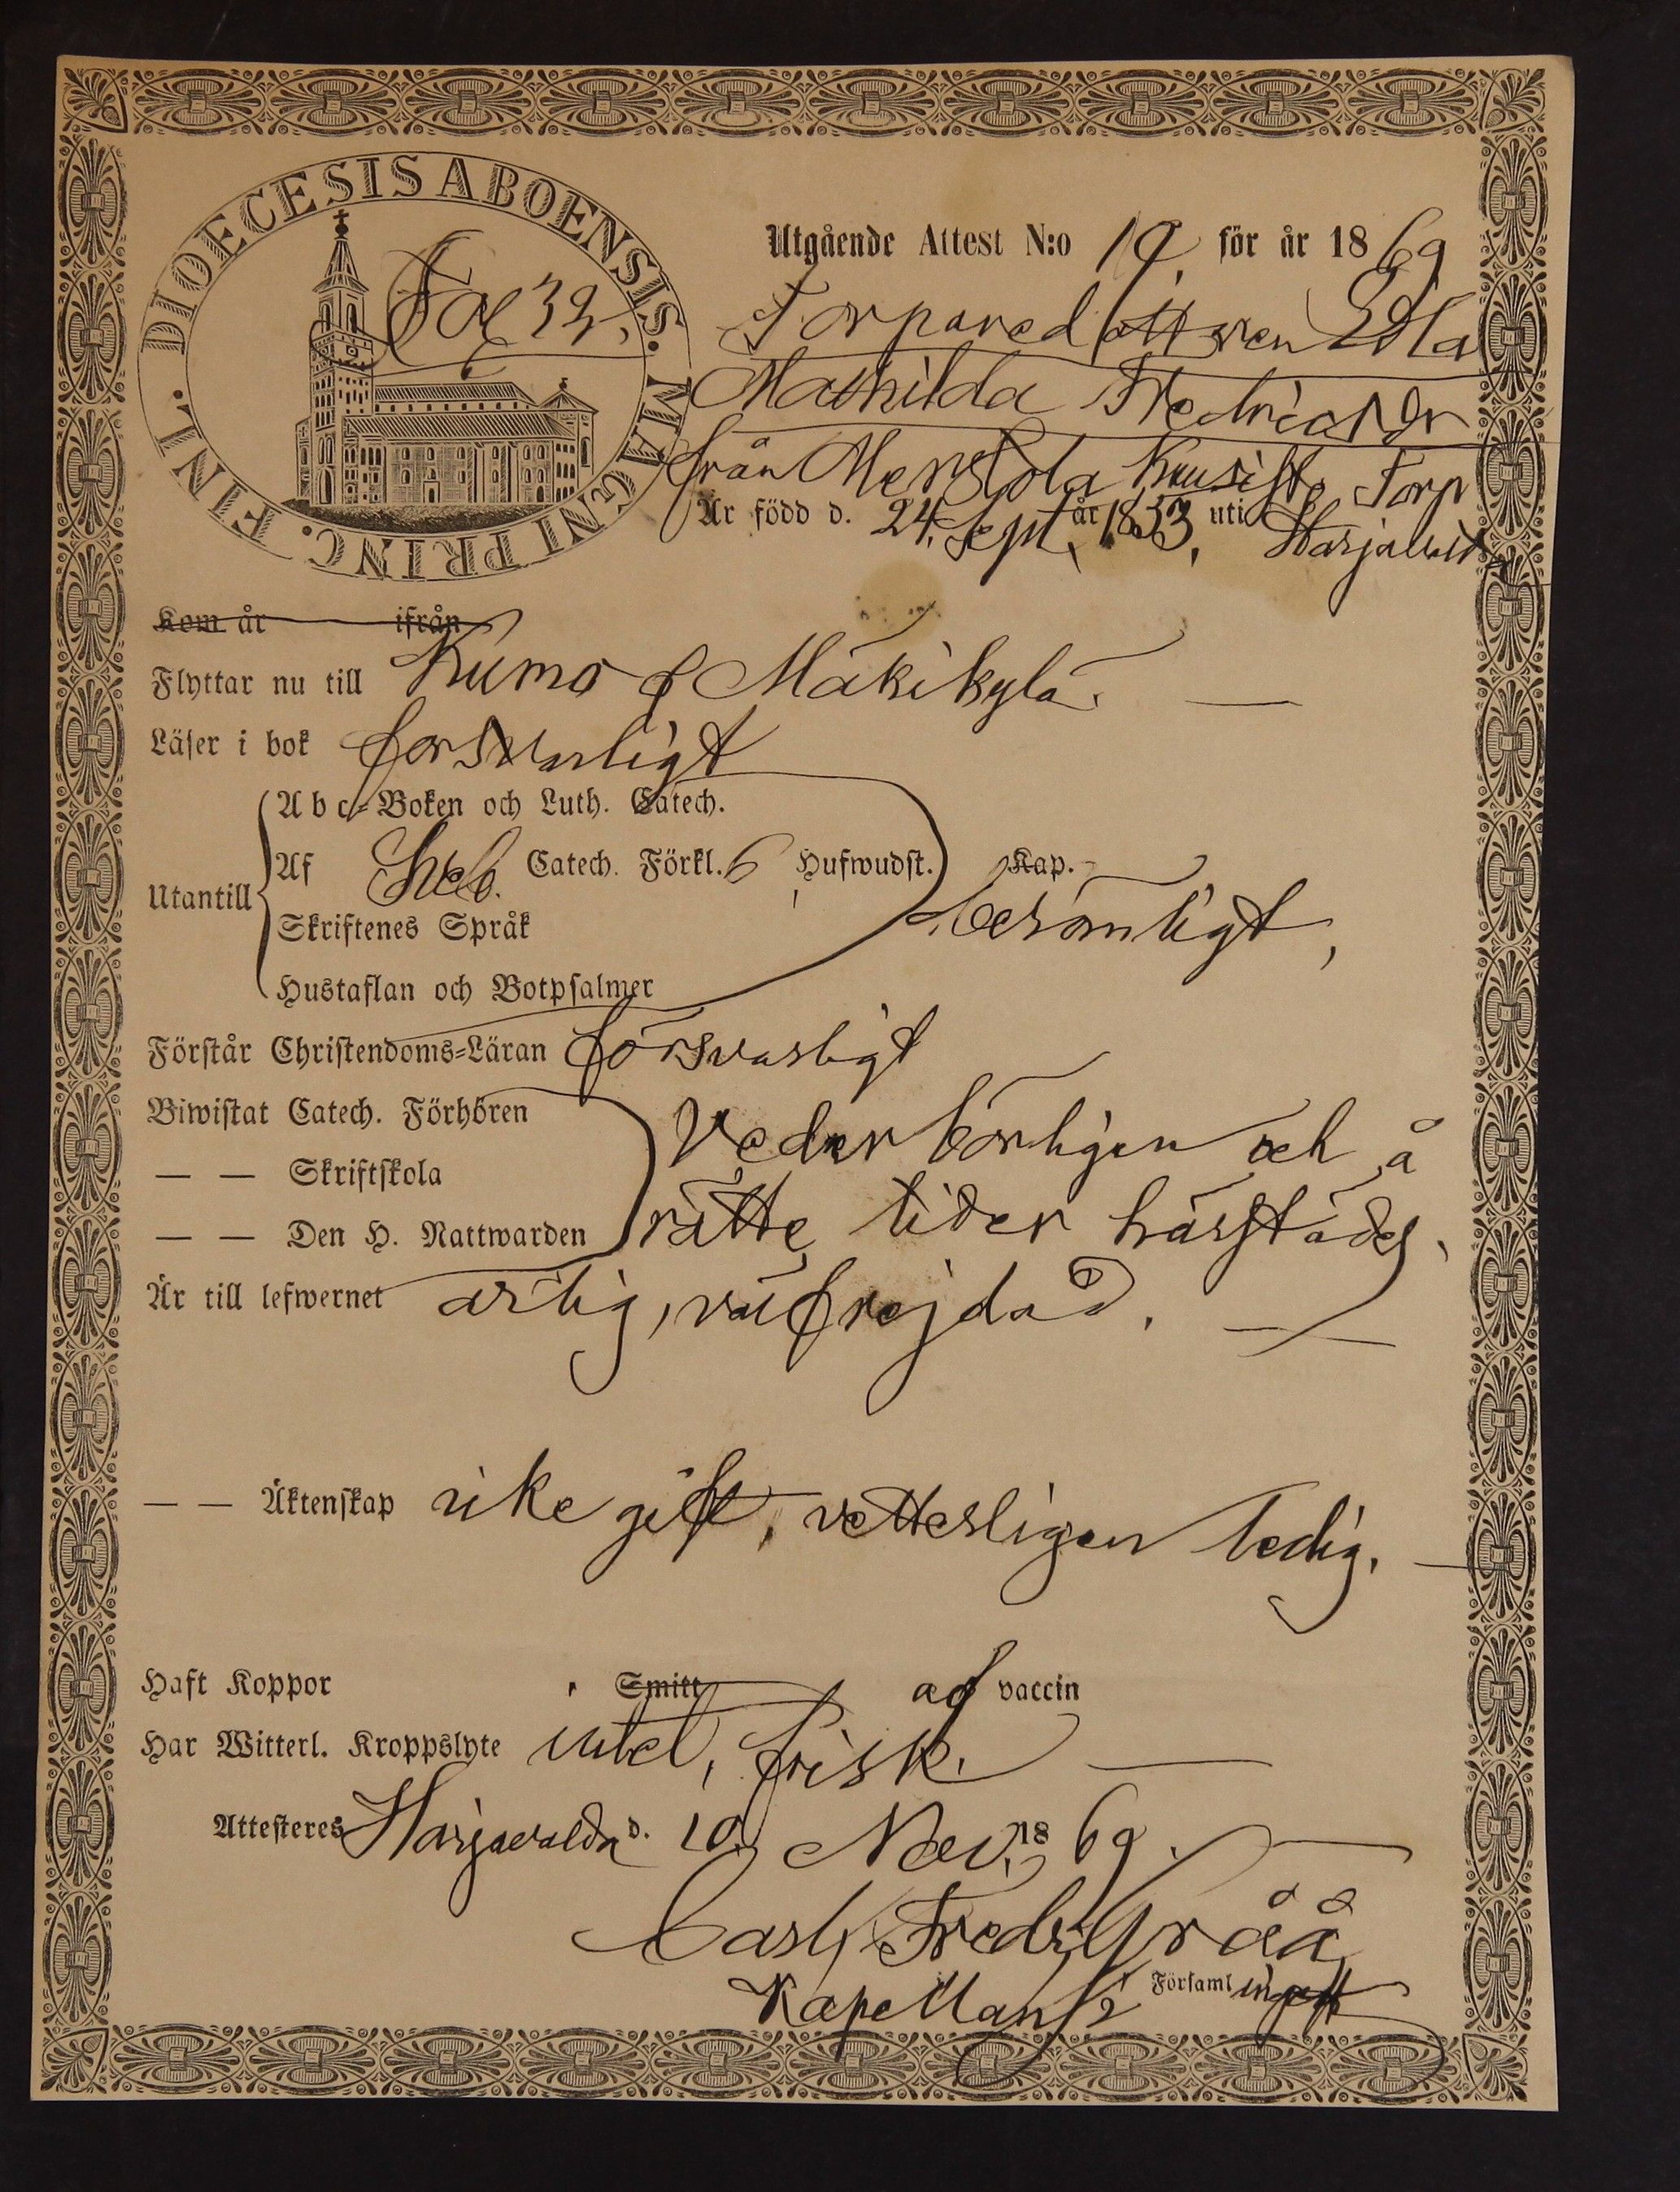 DIOECESIS ABOENSIS. MAGNI PRINC. FINL.
Fol 32.
Utgående Attest N:o 19, för år 1869
Torparedotteren Edla
Mathilda Fredricsdr
från Merstola Kuusisto Torp
Är född d. 24. Sept. år 1853, uti Harjavalda
Kom år ifrån
Flyttar nu till Kumo f Mäkikylä.
Läser i bok forsvarligt
Abc-Boken och Luth. Catech.
Af Sveb. Catech. Förkl. 6 Hufwudst. Kap.
Utantill
berömligt,
Skriftenes Språk
Hustaflan och Botpsalmer
Förstår Christendoms-Läran försvarligt
Biwistat Catech. Förhören Vederbörligen och å
— — Skriftskola
— — Den H. Nattwarden rätte tider härstädes.
Är till lefwernet ärlig, välfrejdad.
— — Äktenskap icke gift, vetterligen ledig.
Haft Koppor Smitt af vaccin
Har Witterl. Kroppslyte intet, frisk.
Attesteres Harjavalda d. 10 Nov. 1869.
Carl Fredr. Gråå
Kapellan Församl